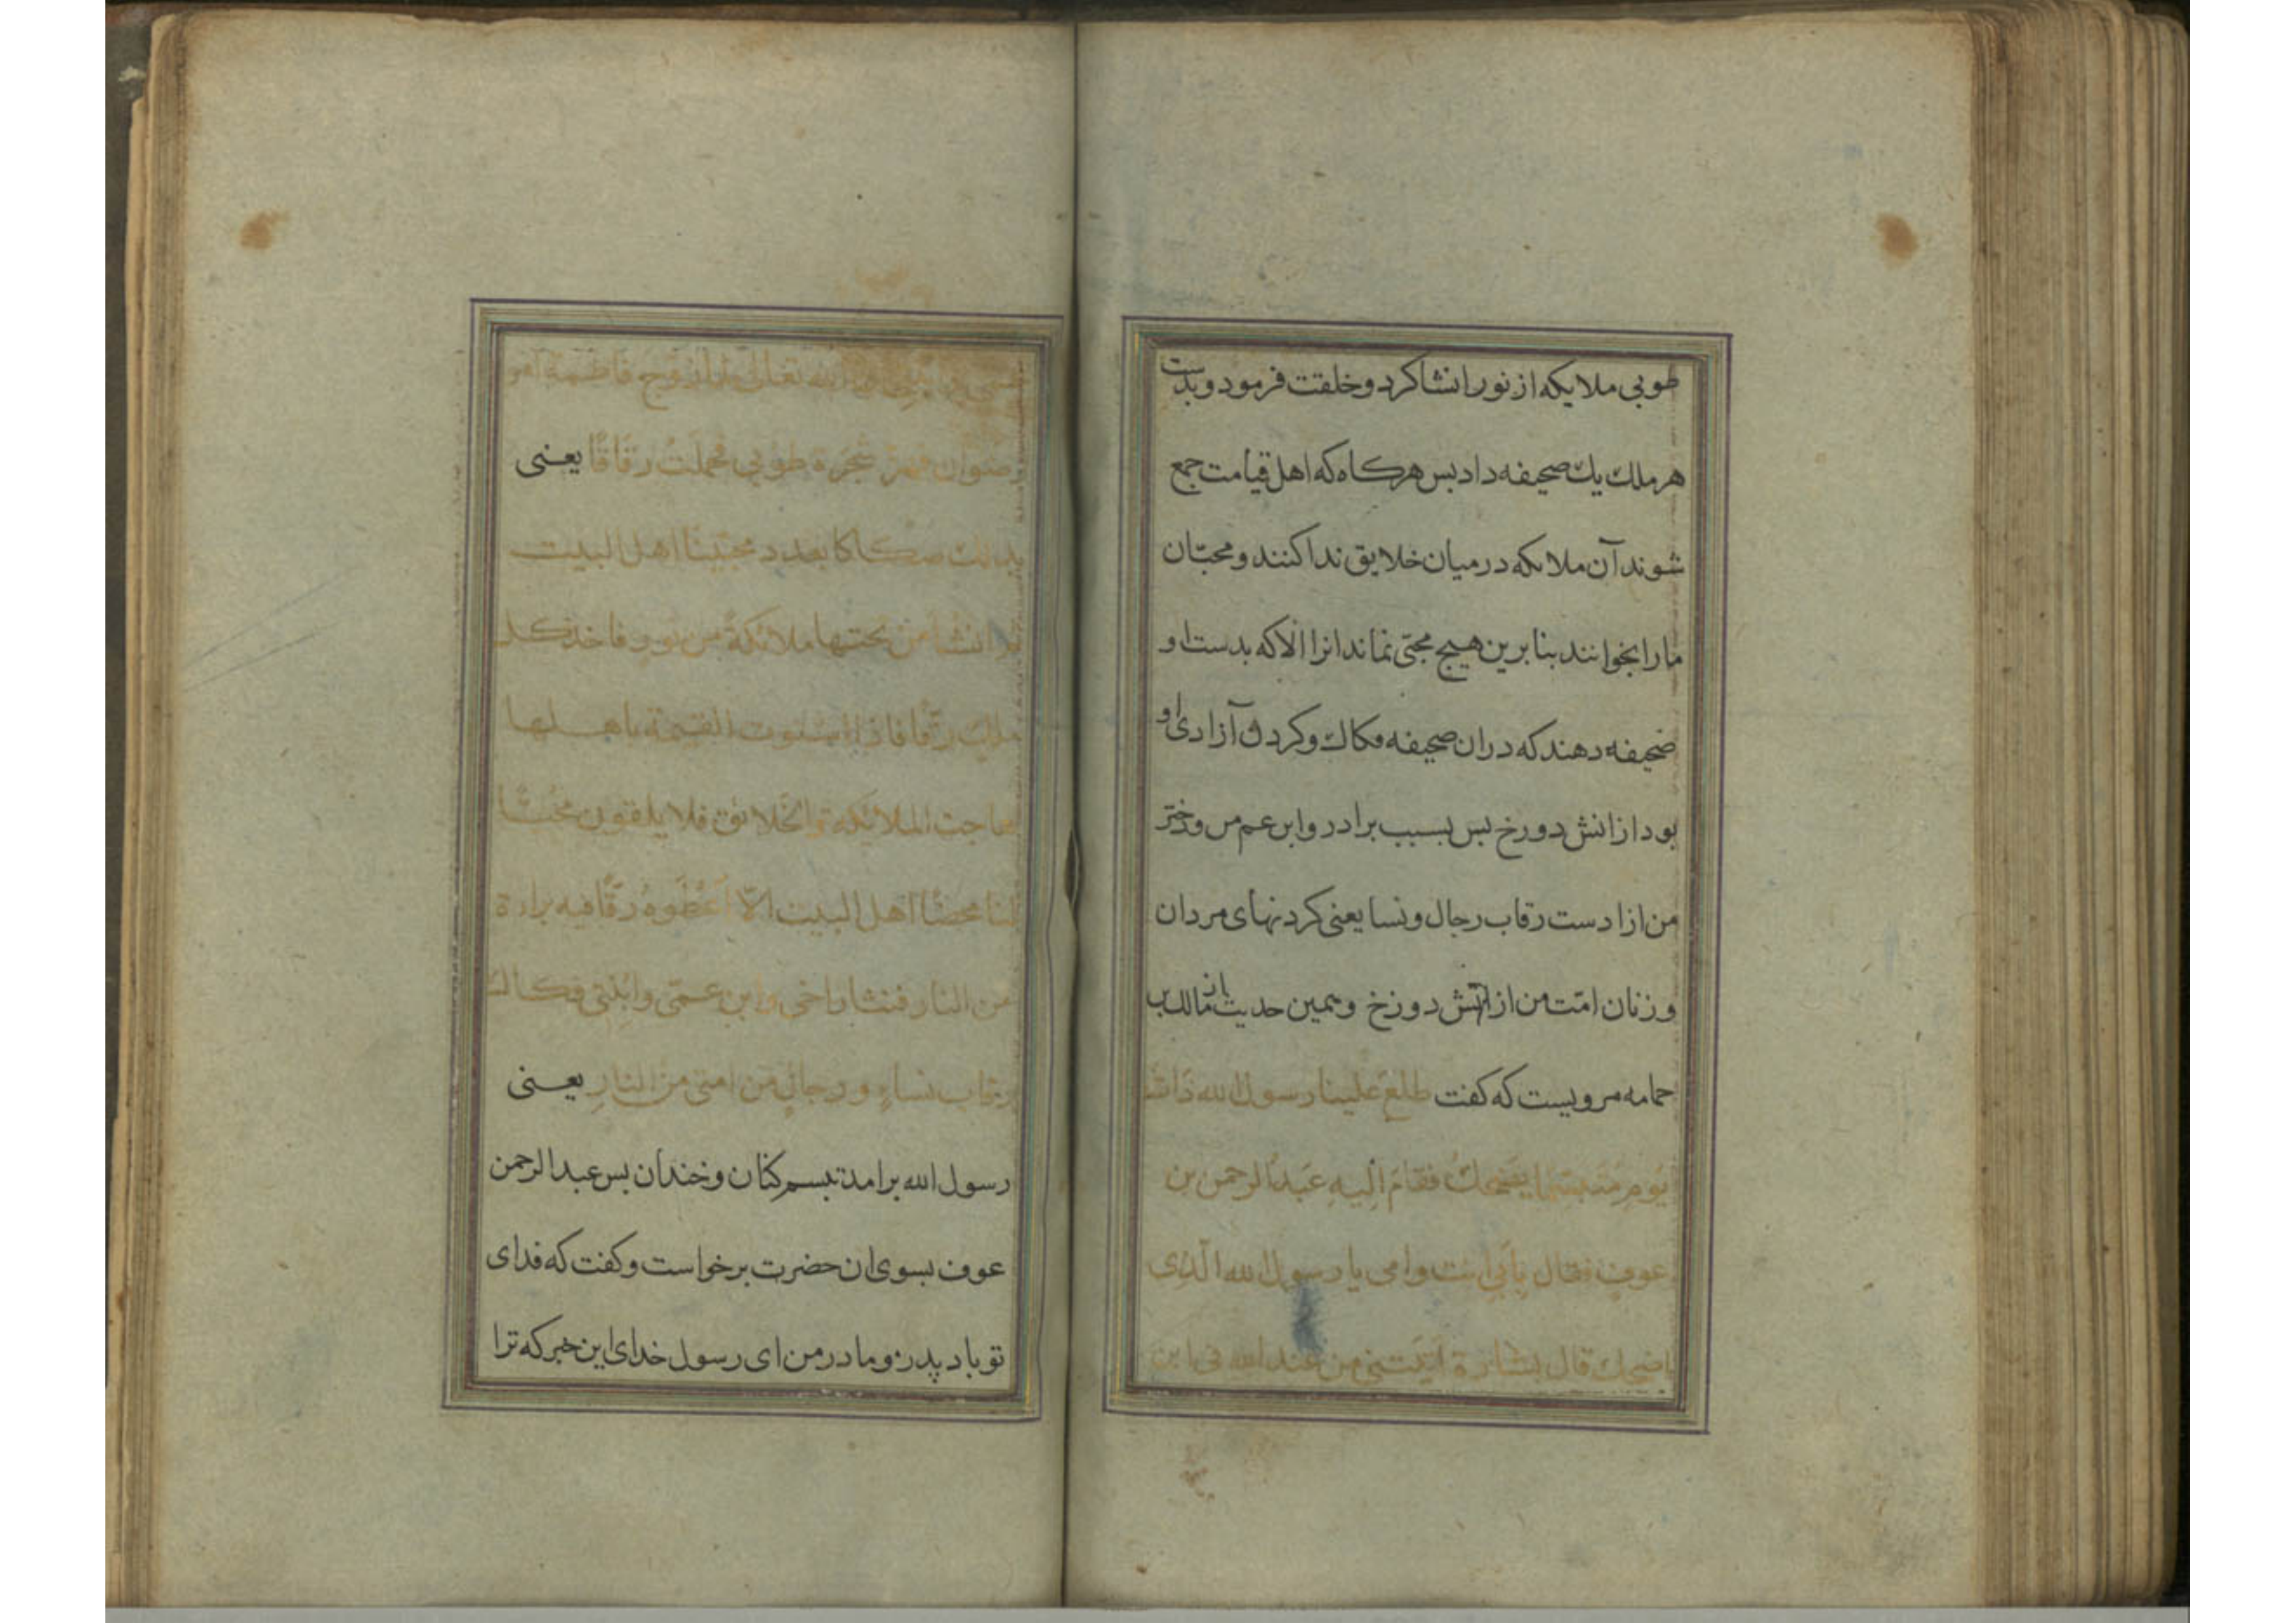 طوبی ملایکه از نور انشا کرد و خلقت فرمود و بدست
هر ملك یك صحیفه داد بس هرکاه که اهل قیامت جمع
شوند آن ملایکه در میان خلایق ندا کنند و محبّان
ما را بخوانند بنابرین هیچ محبّی نماند انرا الّا که بدست او
صحیفه دهند که دران صحیفه فکاك و کردن آزادی او
بود از اتش دورخ بس بسبب برادر و ابن عم من و دختر
من ازادست رقاب رجال و نسا یعنی کردنهای مردان
و زنان امّت من از اتش دوزخ و همین حدیث از مالك بن
حمامه مرویست که کفت طلع علینا رسول الله ذات
یَوم متبسّما یضحك فقام الیه عبد الرحمن بن
عوف فقال بِأَبی انت و امی یا رسول الله الّذی
اضحك قال بشارة اتتنی من عند الله فی ابن
الله تعالی لما زوج فاطمة امر
رضوان فهزّ شجرة طوبی فحملت رقاقًا یعنی
بذلك صکاکا بعدد محبّینا اهل البیت
انشا من تحتها ملائکة من نور فاخذ کل
ملك رقّا فاذا استوت القیمة باهلها
ماجت الملائکة و الخلائق فلا یلقون محبّا
لنا محضًا اهل البیت الّا اَعْطَوهُ رقّا فیه براءة
من النار فنثار اخی و ابن عمّی و ابنتی فکاك
رقاب نساءٍ و رجالٍ من امتی من النارِ یعنی
رسول الله برامد تبسم کنان و خندان بس عبد الرحمن
عوف بسوی ان حضرت برخواست و کفت که فدای
تو باد پدر و مادر من ای رسول خدای این خبر که ترا